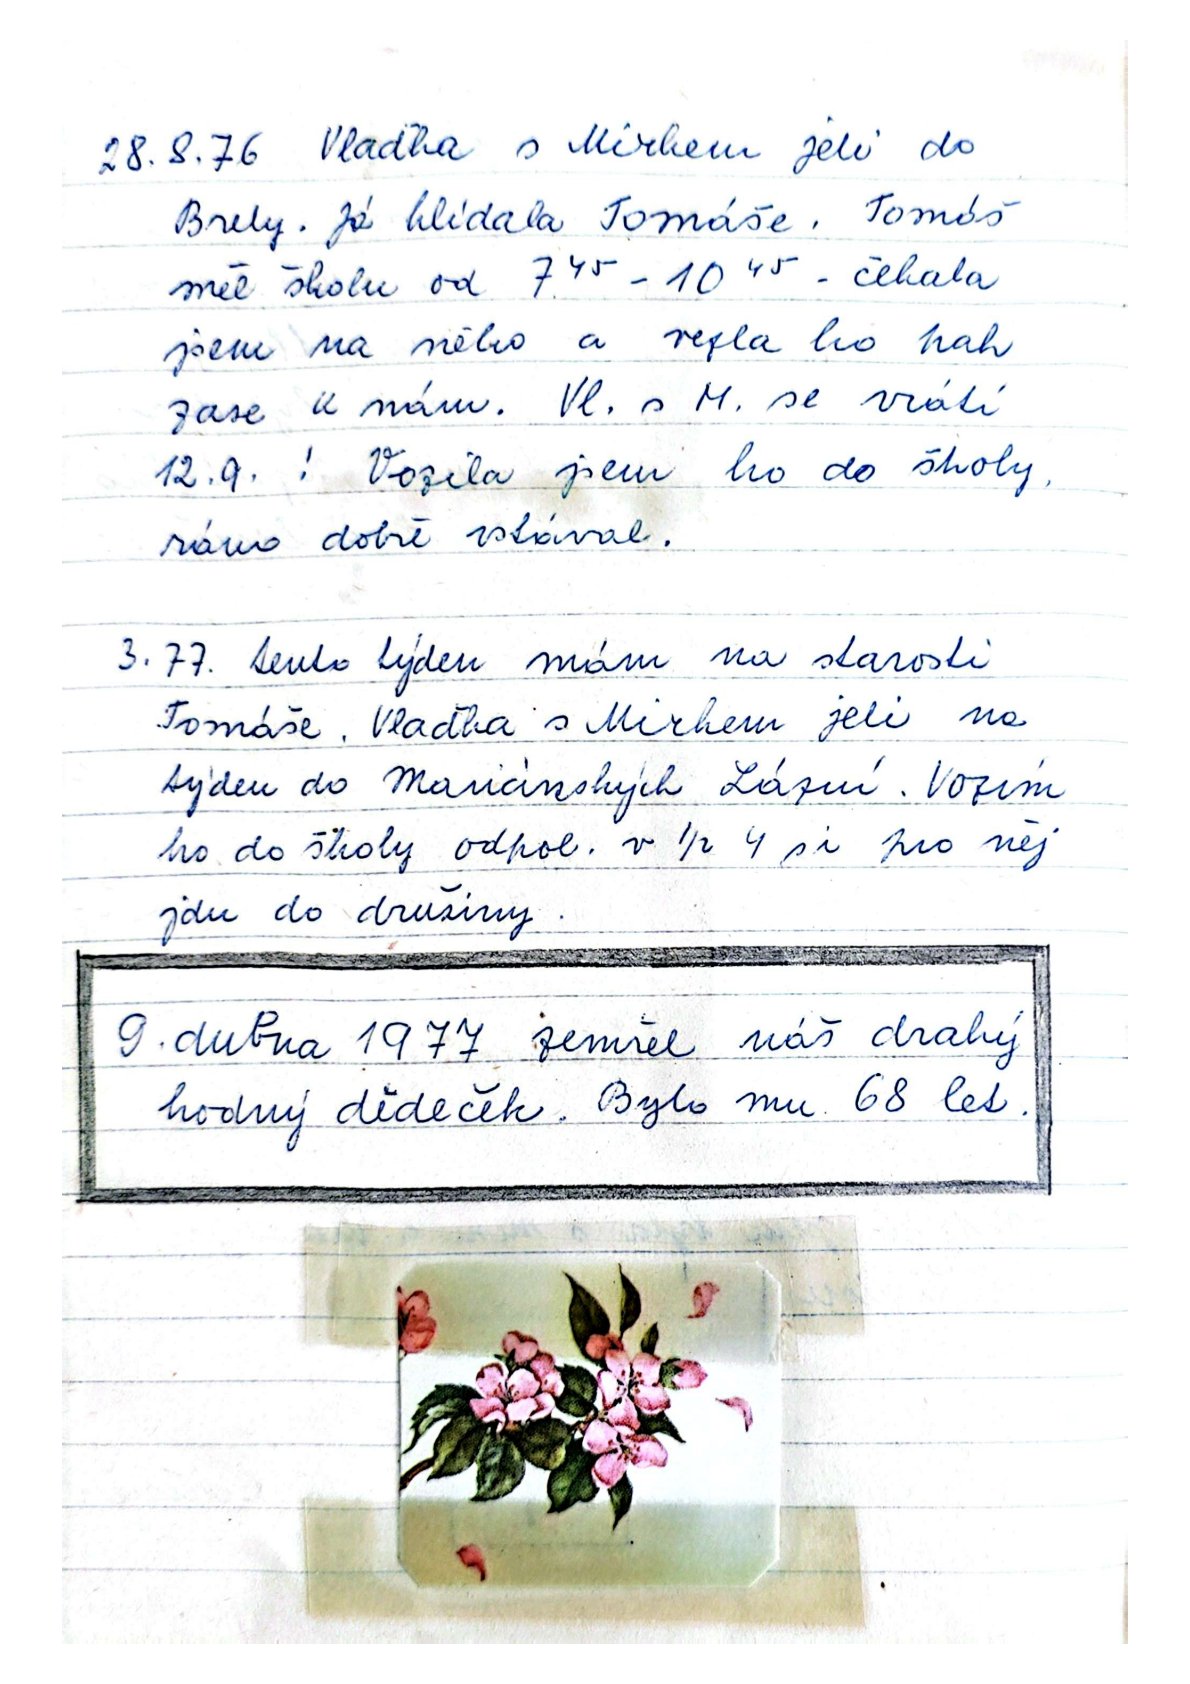 28.8.76 Vlaďka s Mirkem jeli do
Brely. Já hlídala Tomáše. Tomáš
měl školu od 7⁴⁵ - 10⁴⁵ - čekala
jsem na něho a vezla ho pak
zase k nám. Vl. s M. se vrátí
12.9. ! Vozila jsem ho do školy,
ráno dobře vstával.
3.77. tento týden mám na starosti
Tomáše. Vlaďka s Mirkem jeli na
týden do Mariánských Lázní. Vozím
ho do školy odpol. v 1/2 4 si pro něj
jdu do družiny.
9. dubna 1977 zemřel náš drahý
hodný dědeček. Bylo mu 68 let.